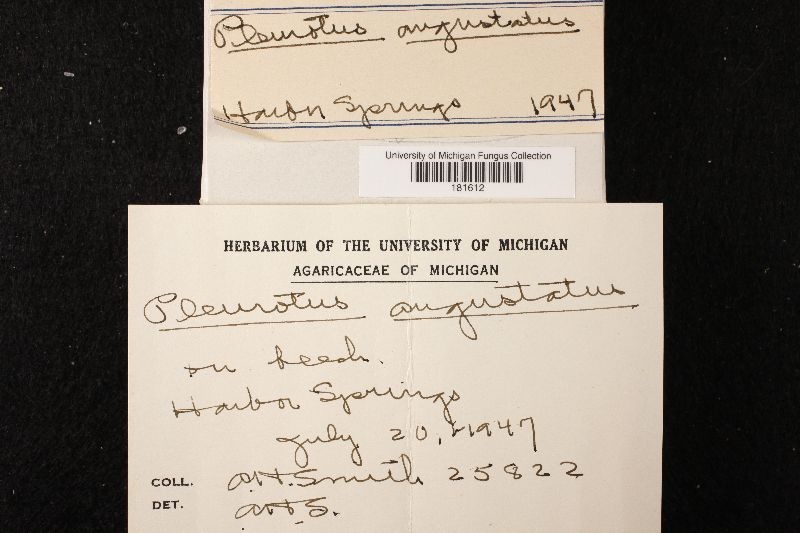 Pleurotus angustatus
Harbor Springs 1947
University of Michigan Fungus Collection
181612
HERBARIUM OF THE UNIVERSITY OF MICHIGAN
AGARICACEAE OF MICHIGAN
Pleurotus angustatus
on beech.
Harbor Springs
July 20, 1947
COLL. A.H. Smith 25822
DET. AHS.